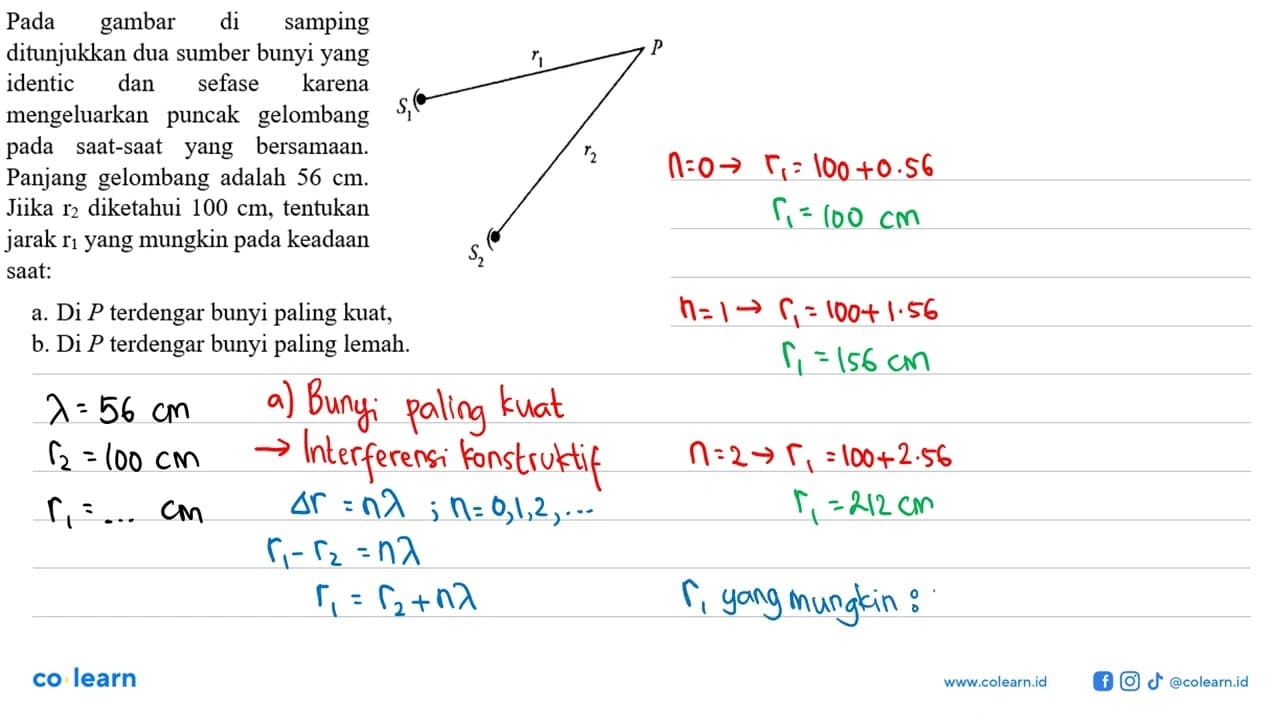 Pada gambar di samping
ditunjukkan dua sumber bunyi yang
identic dan sefase karena
mengeluarkan puncak gelombang
pada saat-saat yang bersamaan.
Panjang gelombang adalah 56 cm.
Jiika r₂ diketahui 100 cm, tentukan
jarak r₁ yang mungkin pada keadaan
saat:
a. Di P terdengar bunyi paling kuat,
b. Di P terdengar bunyi paling lemah.
S₁
r₁
P
r₂
S₂
λ = 56 cm
r₂ = 100 cm
r₁ = ... cm
a) Bunyi paling kuat
→ Interferensi konstruktif
Δr = nλ ; n = 0,1,2,...
r₁ - r₂ = nλ
r₁ = r₂ + nλ
n=0 → r₁ = 100+0.56
r₁ = 100 cm
n=1 → r₁ = 100+1.56
r₁ = 156 cm
n=2 → r₁ = 100+2.56
r₁ = 212 cm
r₁ yang mungkin :
co learn
www.colearn.id
@colearn.id